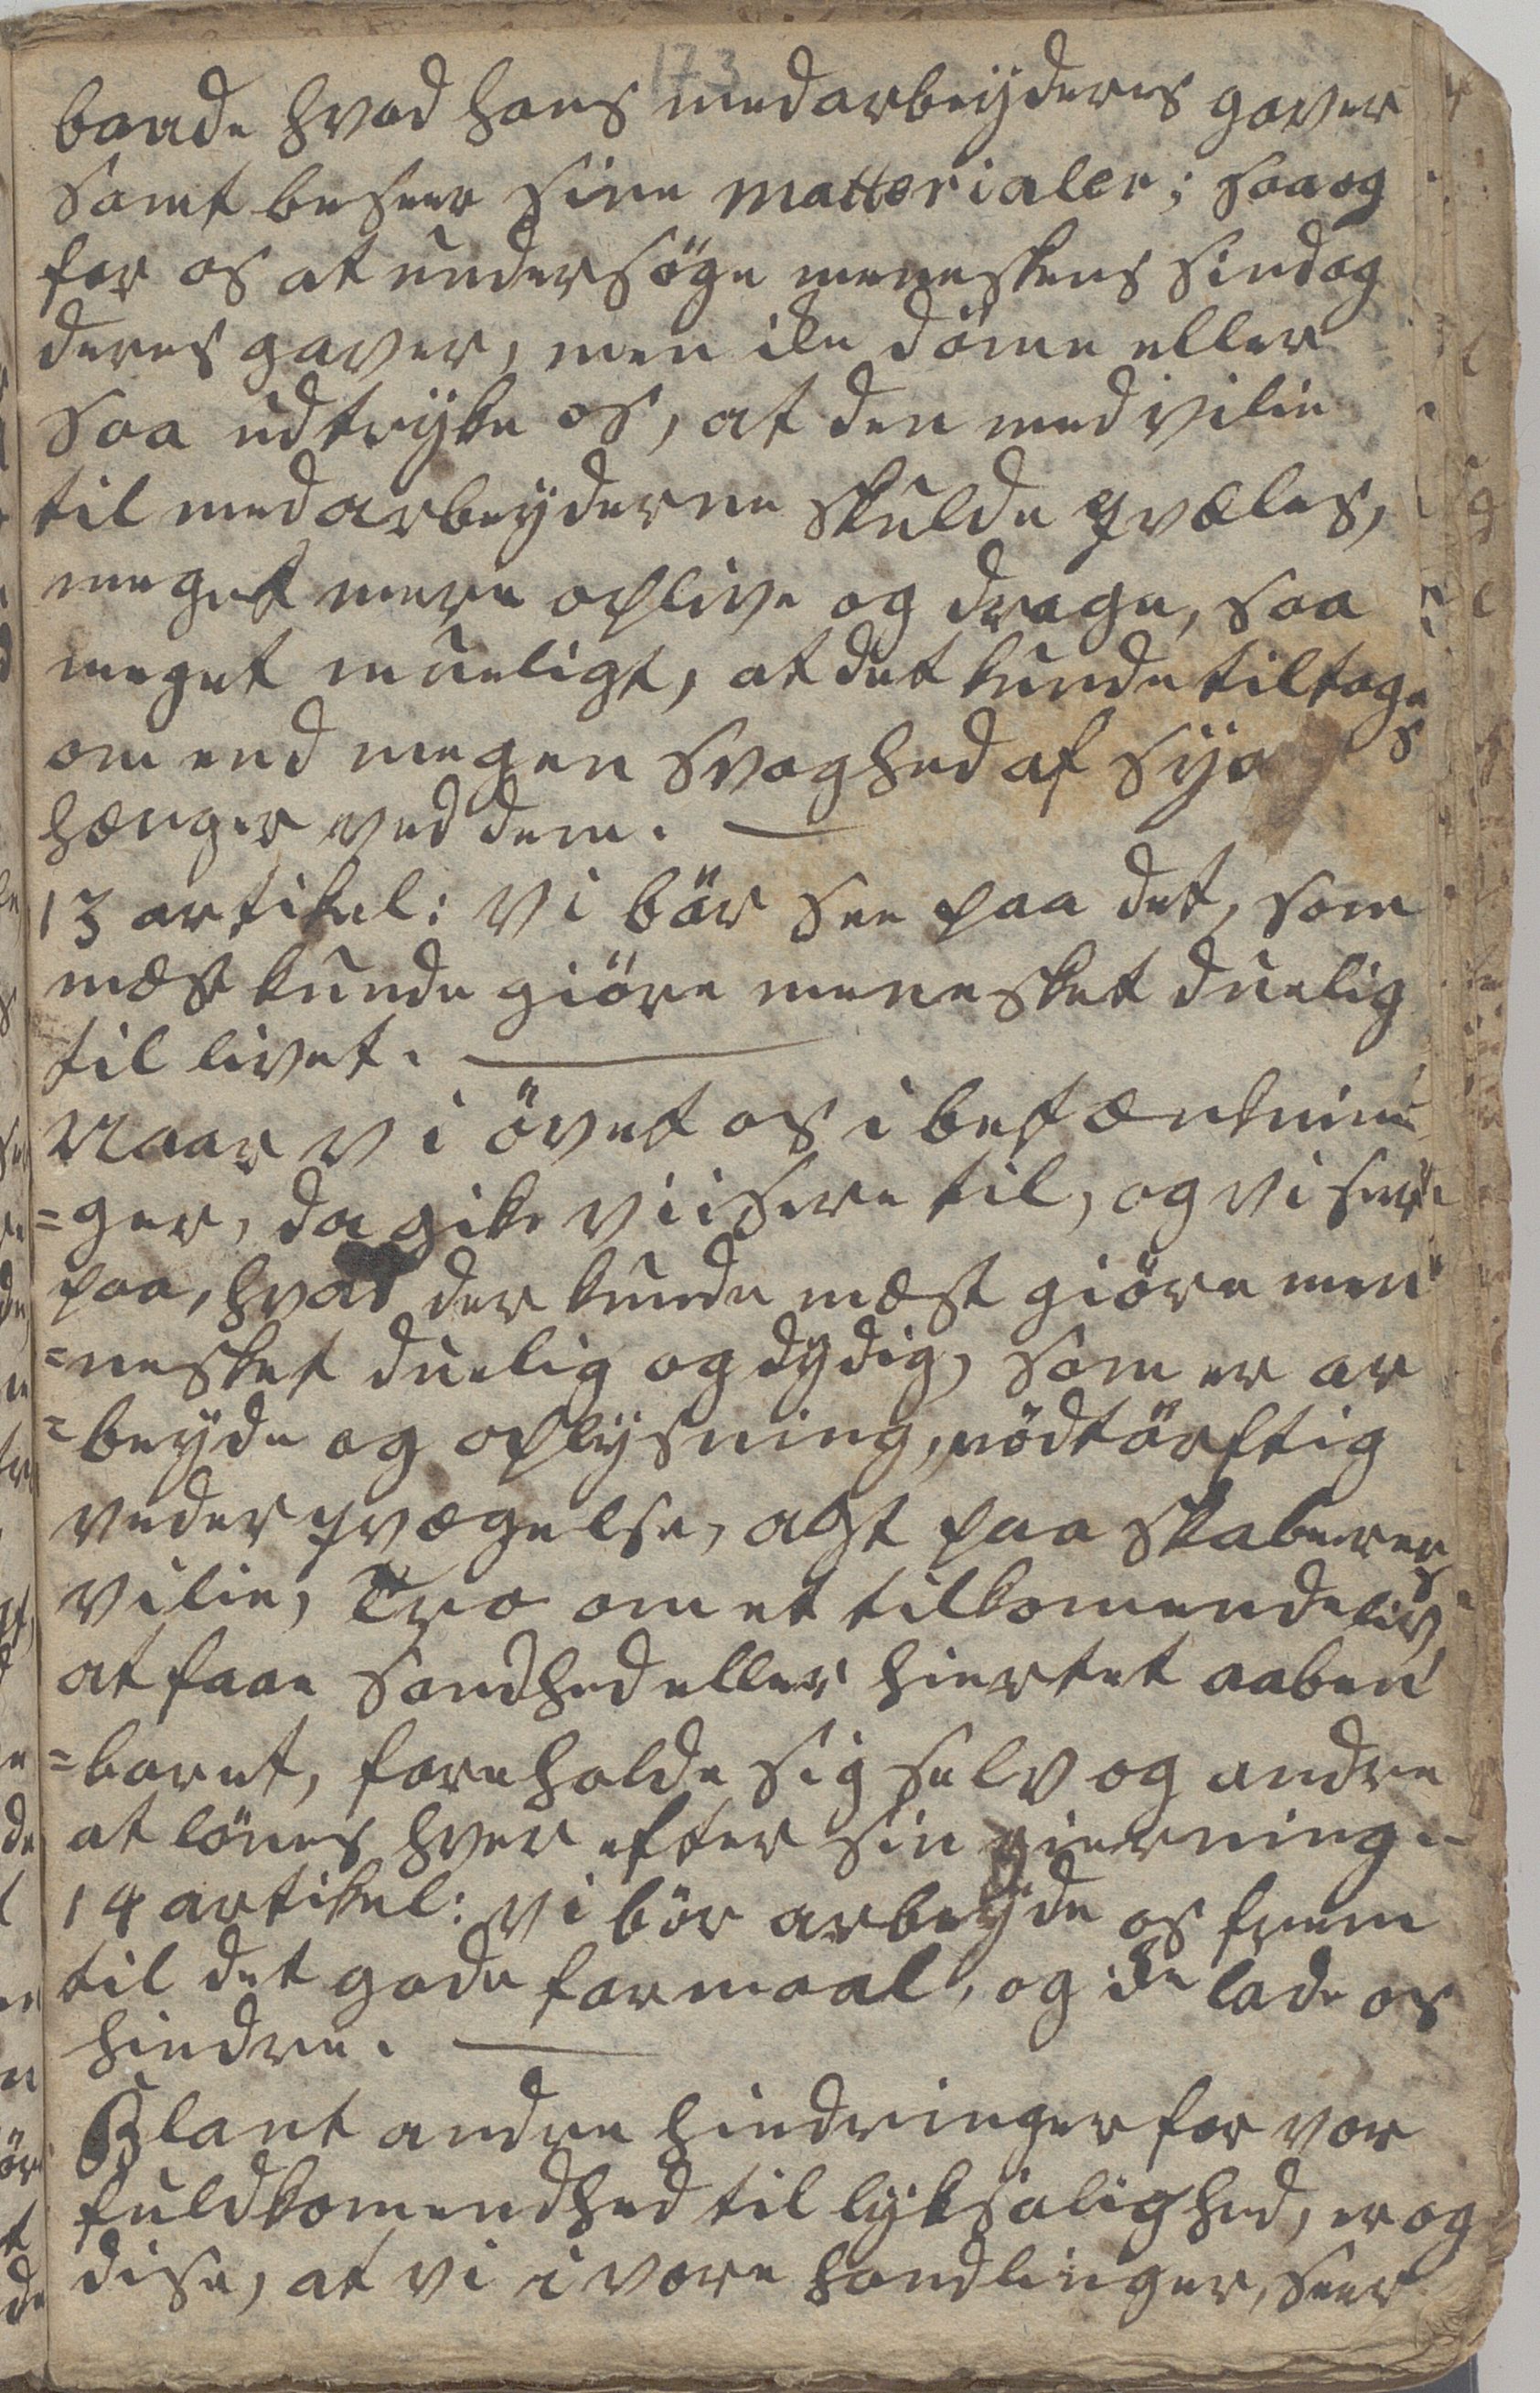 173
baade hvad hans medarbeyderes gaver
samt beseer sine matterialer; saa og
for os at undersöge meneskens sind og
deres gaver, men ike döme eller
saa udtryke os, at den med vilie
til medarbeyderne skulde qvæles,
meget mere oplive og drage, saa
meget mueligt, at det kunde tiltage
om end megen svaghed af syn
hænger ved dem.
13 artikel: Vi bör see paa det, som
mæst kunde giöre menesket duelig
til livet.
Naar vi övet os i betænknin¨
=ger, da gik vi isere til, og vi seer
paa, hvad der kunde mæst giöre men¨
=nesket duelig og dydig, som er ar
=beyde og oplysning, nödtörftig
vederqvægelse, agt paa skaberens
vilie, Tro om et tilkomende liv,
at faae sandhed eller hiertet aaben¨
=baret, foreholde sig selv og andre
at lönes hver efter sin gierning.
14 artikel: Vi bör arbeyde os frem
til det gode formaal, og ike lade os
hindre.
Blant andre hindringer for vor
fuldkomendhed til lyksalighed, er og
dise, at vi i vore handlinger, seer